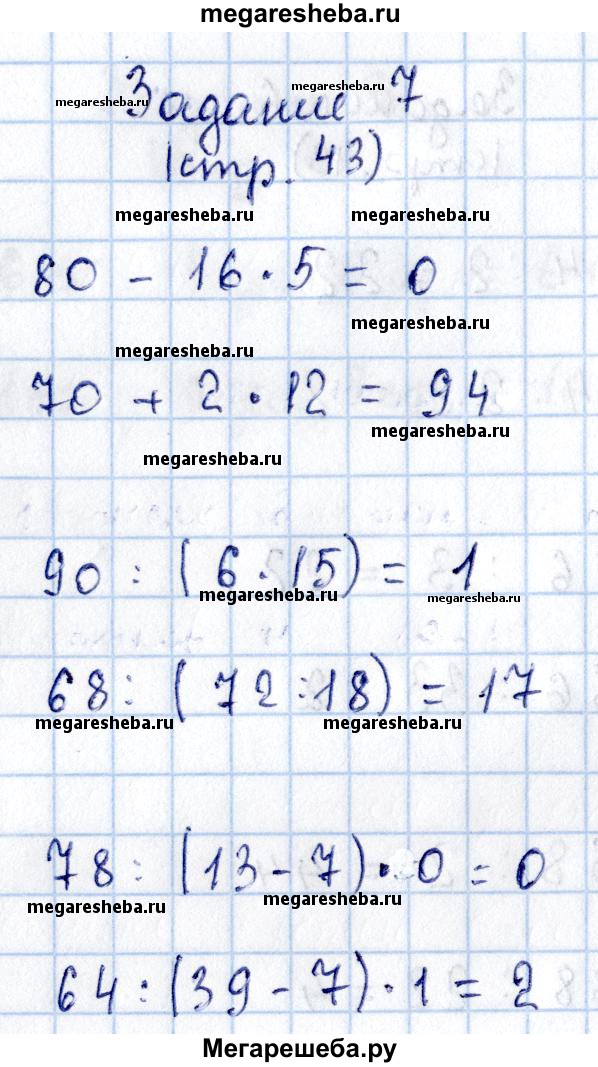 megaresheba.ru
megaresheba.ru megaresheba.ru
Задание 7
(стр. 43)
megaresheba.ru megaresheba.ru
80 - 16 · 5 = 0
megaresheba.ru
megaresheba.ru
70 + 2 · 12 = 94
megaresheba.ru
megaresheba.ru
90 : (6 · 15) = 1
megaresheba.ru megaresheba.ru
68 : (72 : 18) = 17
megaresheba.ru megaresheba.ru
78 : (13 - 7) · 0 = 0
megaresheba.ru megaresheba.ru
64 : (39 - 7) · 1 = 2
Мегарешеба.ру